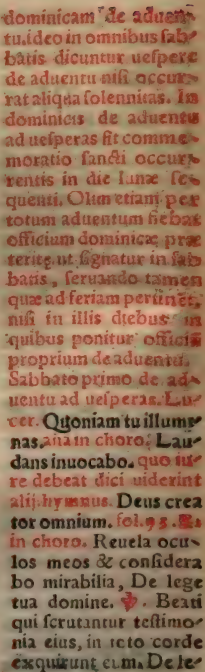 dominicam de aduen-
tu.ideo in omnibus sab-
batis dicuntur uespere
de aduentu nisi occur-
rat aliqua solennitas. In
dominicis de aduentu
ad uesperas fit comme-
moratio sancti occur-
rentis in die lunæ se-
quenti. Olim etiam per
totum aduentum fiebat
officium dominicæ præ
terite,ut signatur in sab
batis, seruando tamen
quæ ad feriam pertinet,
nisi in illis diebus in
quibus ponitur officiũ
proprium de aduentu.
Sabbato primo de ad-
uentu ad uesperas. Lu-
cer. Qñoniam tu illumi-
nas. aña in choro. Lau-
dans inuocabo. quo iu-
re debeat dici uiderint
alij. hymnus. Deus crea
tor omnium. fol.93. ℞.
in choro. Reuela ocu-
los meos & considera
bo mirabilia, De lege
tua domine. ℣. Beati
qui scrutantur testimo-
nia eius, in toto corde
exquirunt eum. De le-